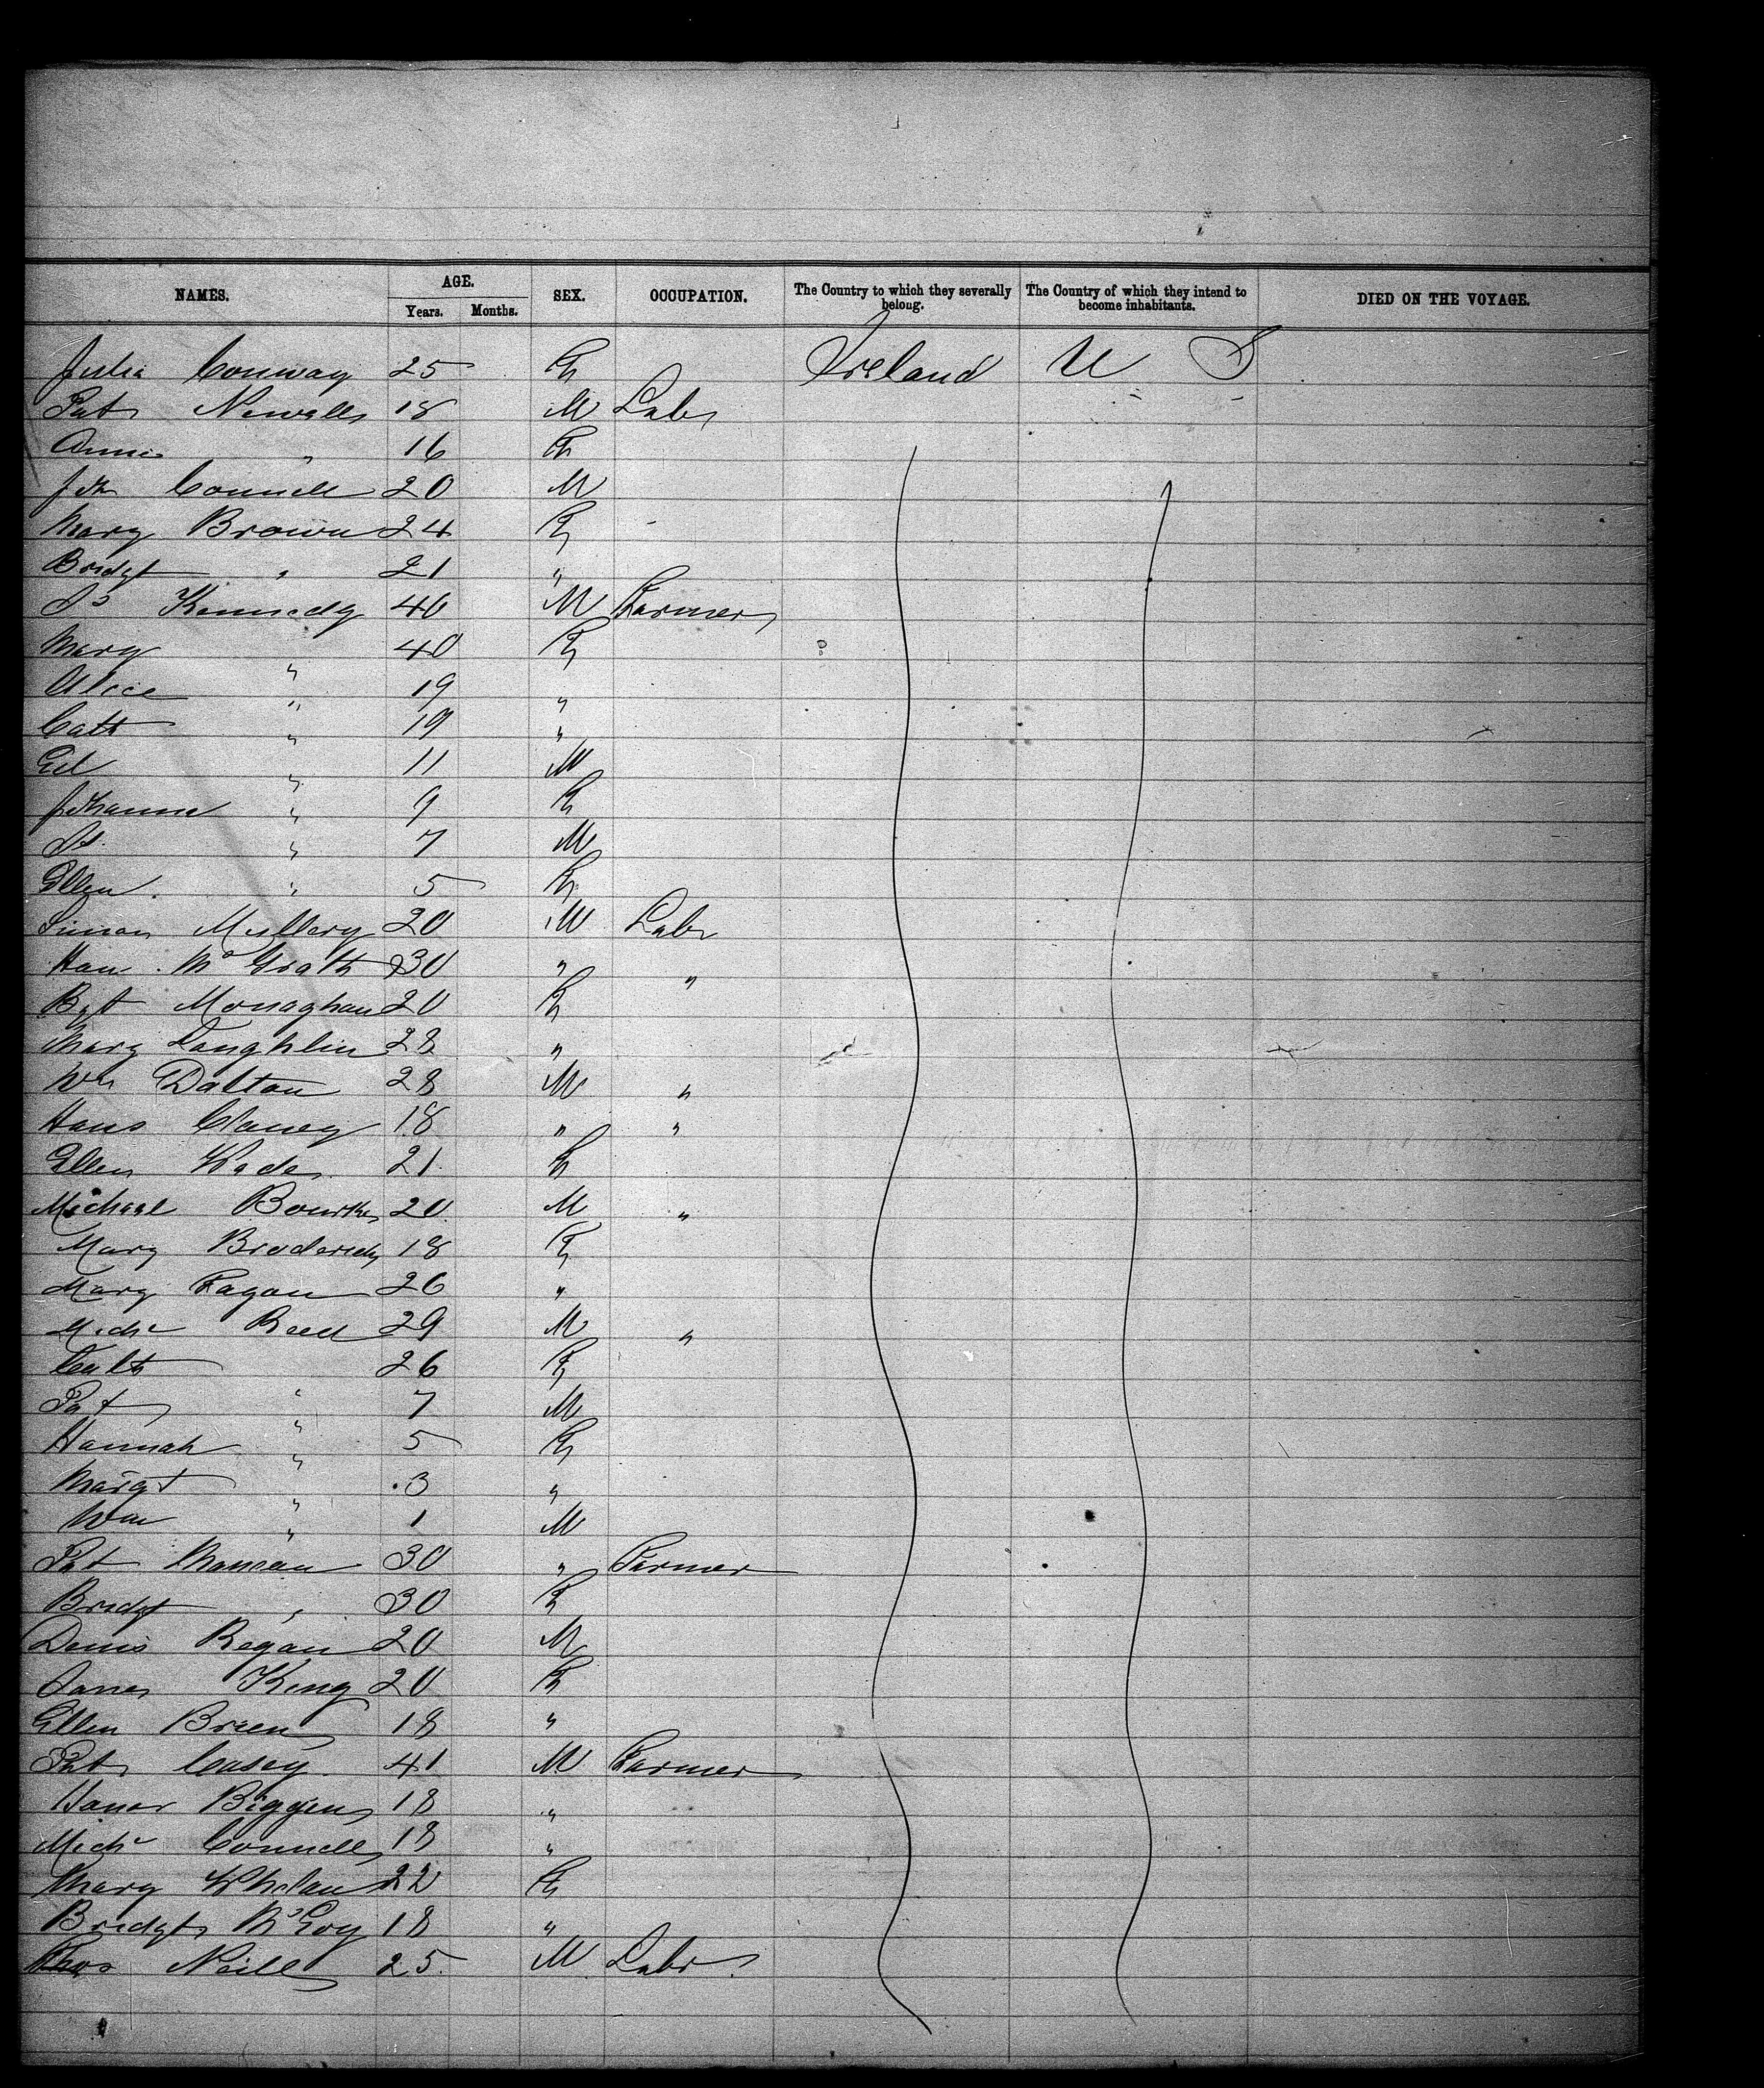 NAMES. AGE. SEX. OCCUPATION. The Country to which they severally belong. The Country of which they intend to become inhabitants. DIED ON THE VOYAGE.
Years. Months.
Julia Conway 25 F Ireland U S
Pat Newell 18 M Labr
Annie " 16 F
Jno Connell 20 M
Mary Brown 24 F
Bridgt " 21 "
Kennedy 40 M Farmer
Mary " 40 F
Alice " 19 "
Cath " 19 "
Ed " 11 M
Johanna " 9 F
" 7 M
Ellen " 5 F
Simon Mullery 20 M Labr
McGrath 30 " "
Bgt Monaghan 20 F
Mary Laughlin 28 "
Wm Dalton 28 M "
Clancy 18 " "
Ellen 21 F
Michael Bourke 20 M "
Mary Broderick 18 F
Mary Fagan 26 "
Michl Reed 29 M "
Cath " 26 F
Pat " 7 M
Hannah " 5 F
Margt " 3 "
Wm " 1 M
Pat 30 " Farmer
Bridgt " 30 F
Denis Regan 20 M
King 20 F
Ellen Brien 18 "
Pat Casey 41 M Farmer
Honor Biggins 18 "
Michl Connell 18 "
Mary Whelan 22 F
Bridgt McCoy 18 "
Thos Neill 25 M Labr